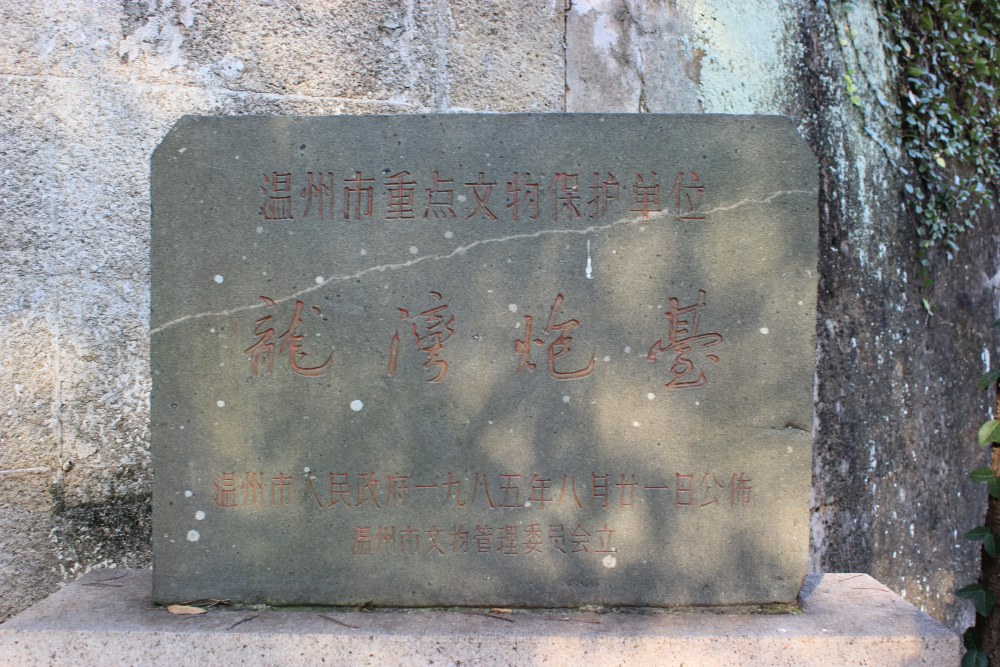 温州市重点文物保护单位
龍灣炮臺
温州市人民政府一九八五年八月廿一日公佈
温州市文物管理委员会立